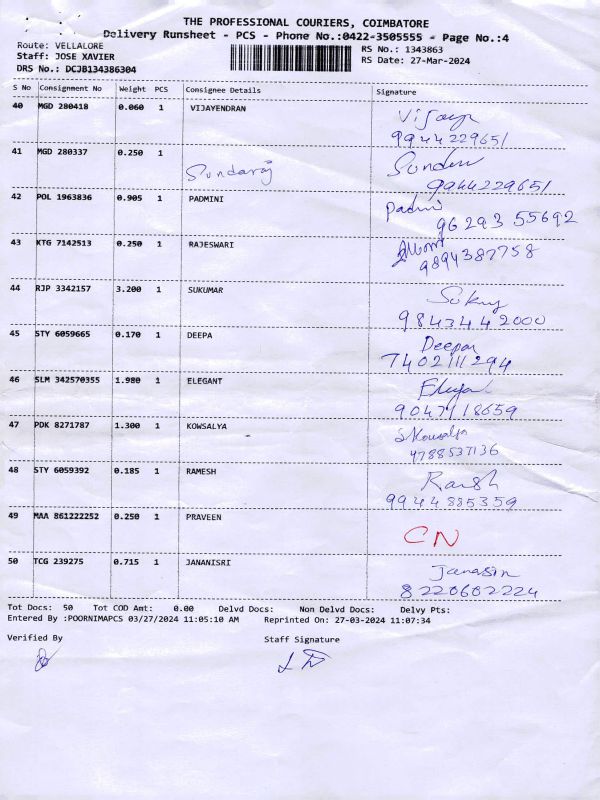 THE PROFESSIONAL COURIERS, COIMBATORE
Delivery Runsheet - PCS - Phone No.:0422-3505555 - Page No.:4
Route: VELLALORE RS No.: 1343863
Staff: JOSE XAVIER RS Date: 27-Mar-2024
DRS No.: DCJB134386304
S No Consignment No Weight PCS Consignee Details Signature
40 MGD 280418 0.060 1 VIJAYENDRAN
9944229651
41 MGD 280337 0.250 1 Sundaraj
9944229651
42 POL 1963836 0.905 1 PADMINI Padmini
96293 55692
43 KTG 7142513 0.250 1 RAJESWARI
9894387758
44 RJP 3342157 3.200 1 SUKUMAR
9843442000
45 STY 6059665 0.170 1 DEEPA Deepa
7402111294
46 SLM 342570355 1.980 1 ELEGANT
9047118659
47 PDK 8271787 1.300 1 KOWSALYA S Kowsalya
9788537136
48 STY 6059392 0.185 1 RAMESH
9944885359
49 MAA 861222252 0.250 1 PRAVEEN CN
50 TCG 239275 0.715 1 JANANISRI
8220602224
Tot Docs: 50 Tot COD Amt: 0.00 Delvd Docs: Non Delvd Docs: Delvy Pts:
Entered By :POORNIMAPCS 03/27/2024 11:05:10 AM Reprinted On: 27-03-2024 11:07:34
Verified By Staff Signature